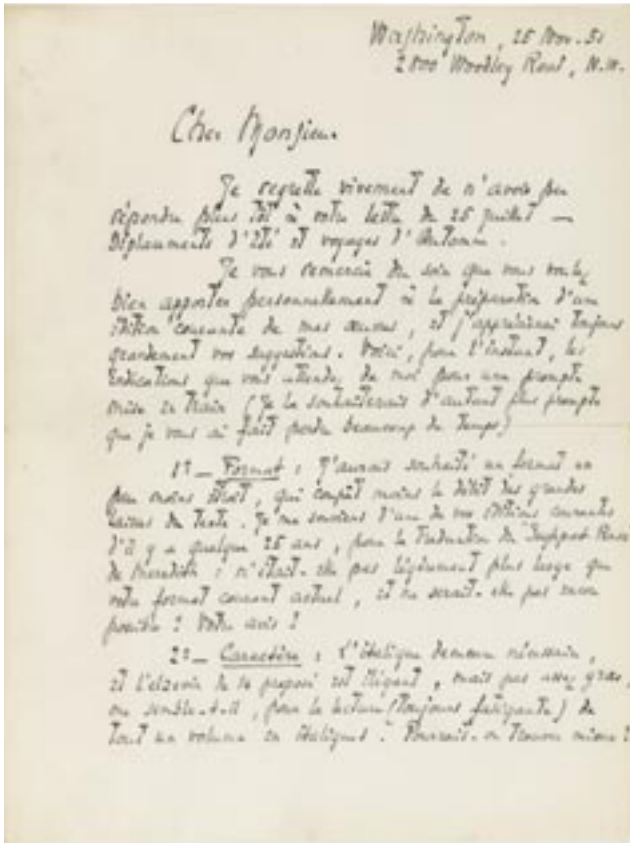 Washington, 25 Nov. 51
2800 Woodley Road, N.W.
Cher Monsieur
Je regrette vivement de n'avoir pu
répondre plus tôt à votre lettre du 25 juillet —
Déplacements d'été et voyages d'Automne.
Je vous remercie du soin que vous voulez
bien apporter personnellement à la préparation d'une
édition courante de mes œuvres, et j'apprécierai toujours
grandement vos suggestions. Voici, pour l'instant, les
indications que vous attendez de moi pour une prompte
mise en train (Je la souhaiterais d'autant plus prompte
que je vous ai fait perdre beaucoup de temps)
1º — Format : J'aurais souhaité un format un
peu moins étroit, qui coupât moins le débit des grandes
laisses du texte. Je me souviens d'une de vos éditions courantes
d'il y a quelque 25 ans, pour la Traduction du
de Meredith : n'était-elle pas légèrement plus large que
votre format courant actuel, et ne serait-elle pas encore
possible ? Votre avis ?
2º — Caractère : L'italique demeure nécessaire,
et l'elzévir de 14 proposé est élégant, mais pas assez gras,
me semble-t-il, pour la lecture (toujours fatigante) de
tout un volume en italiques. Pourrait-on trouver mieux ?